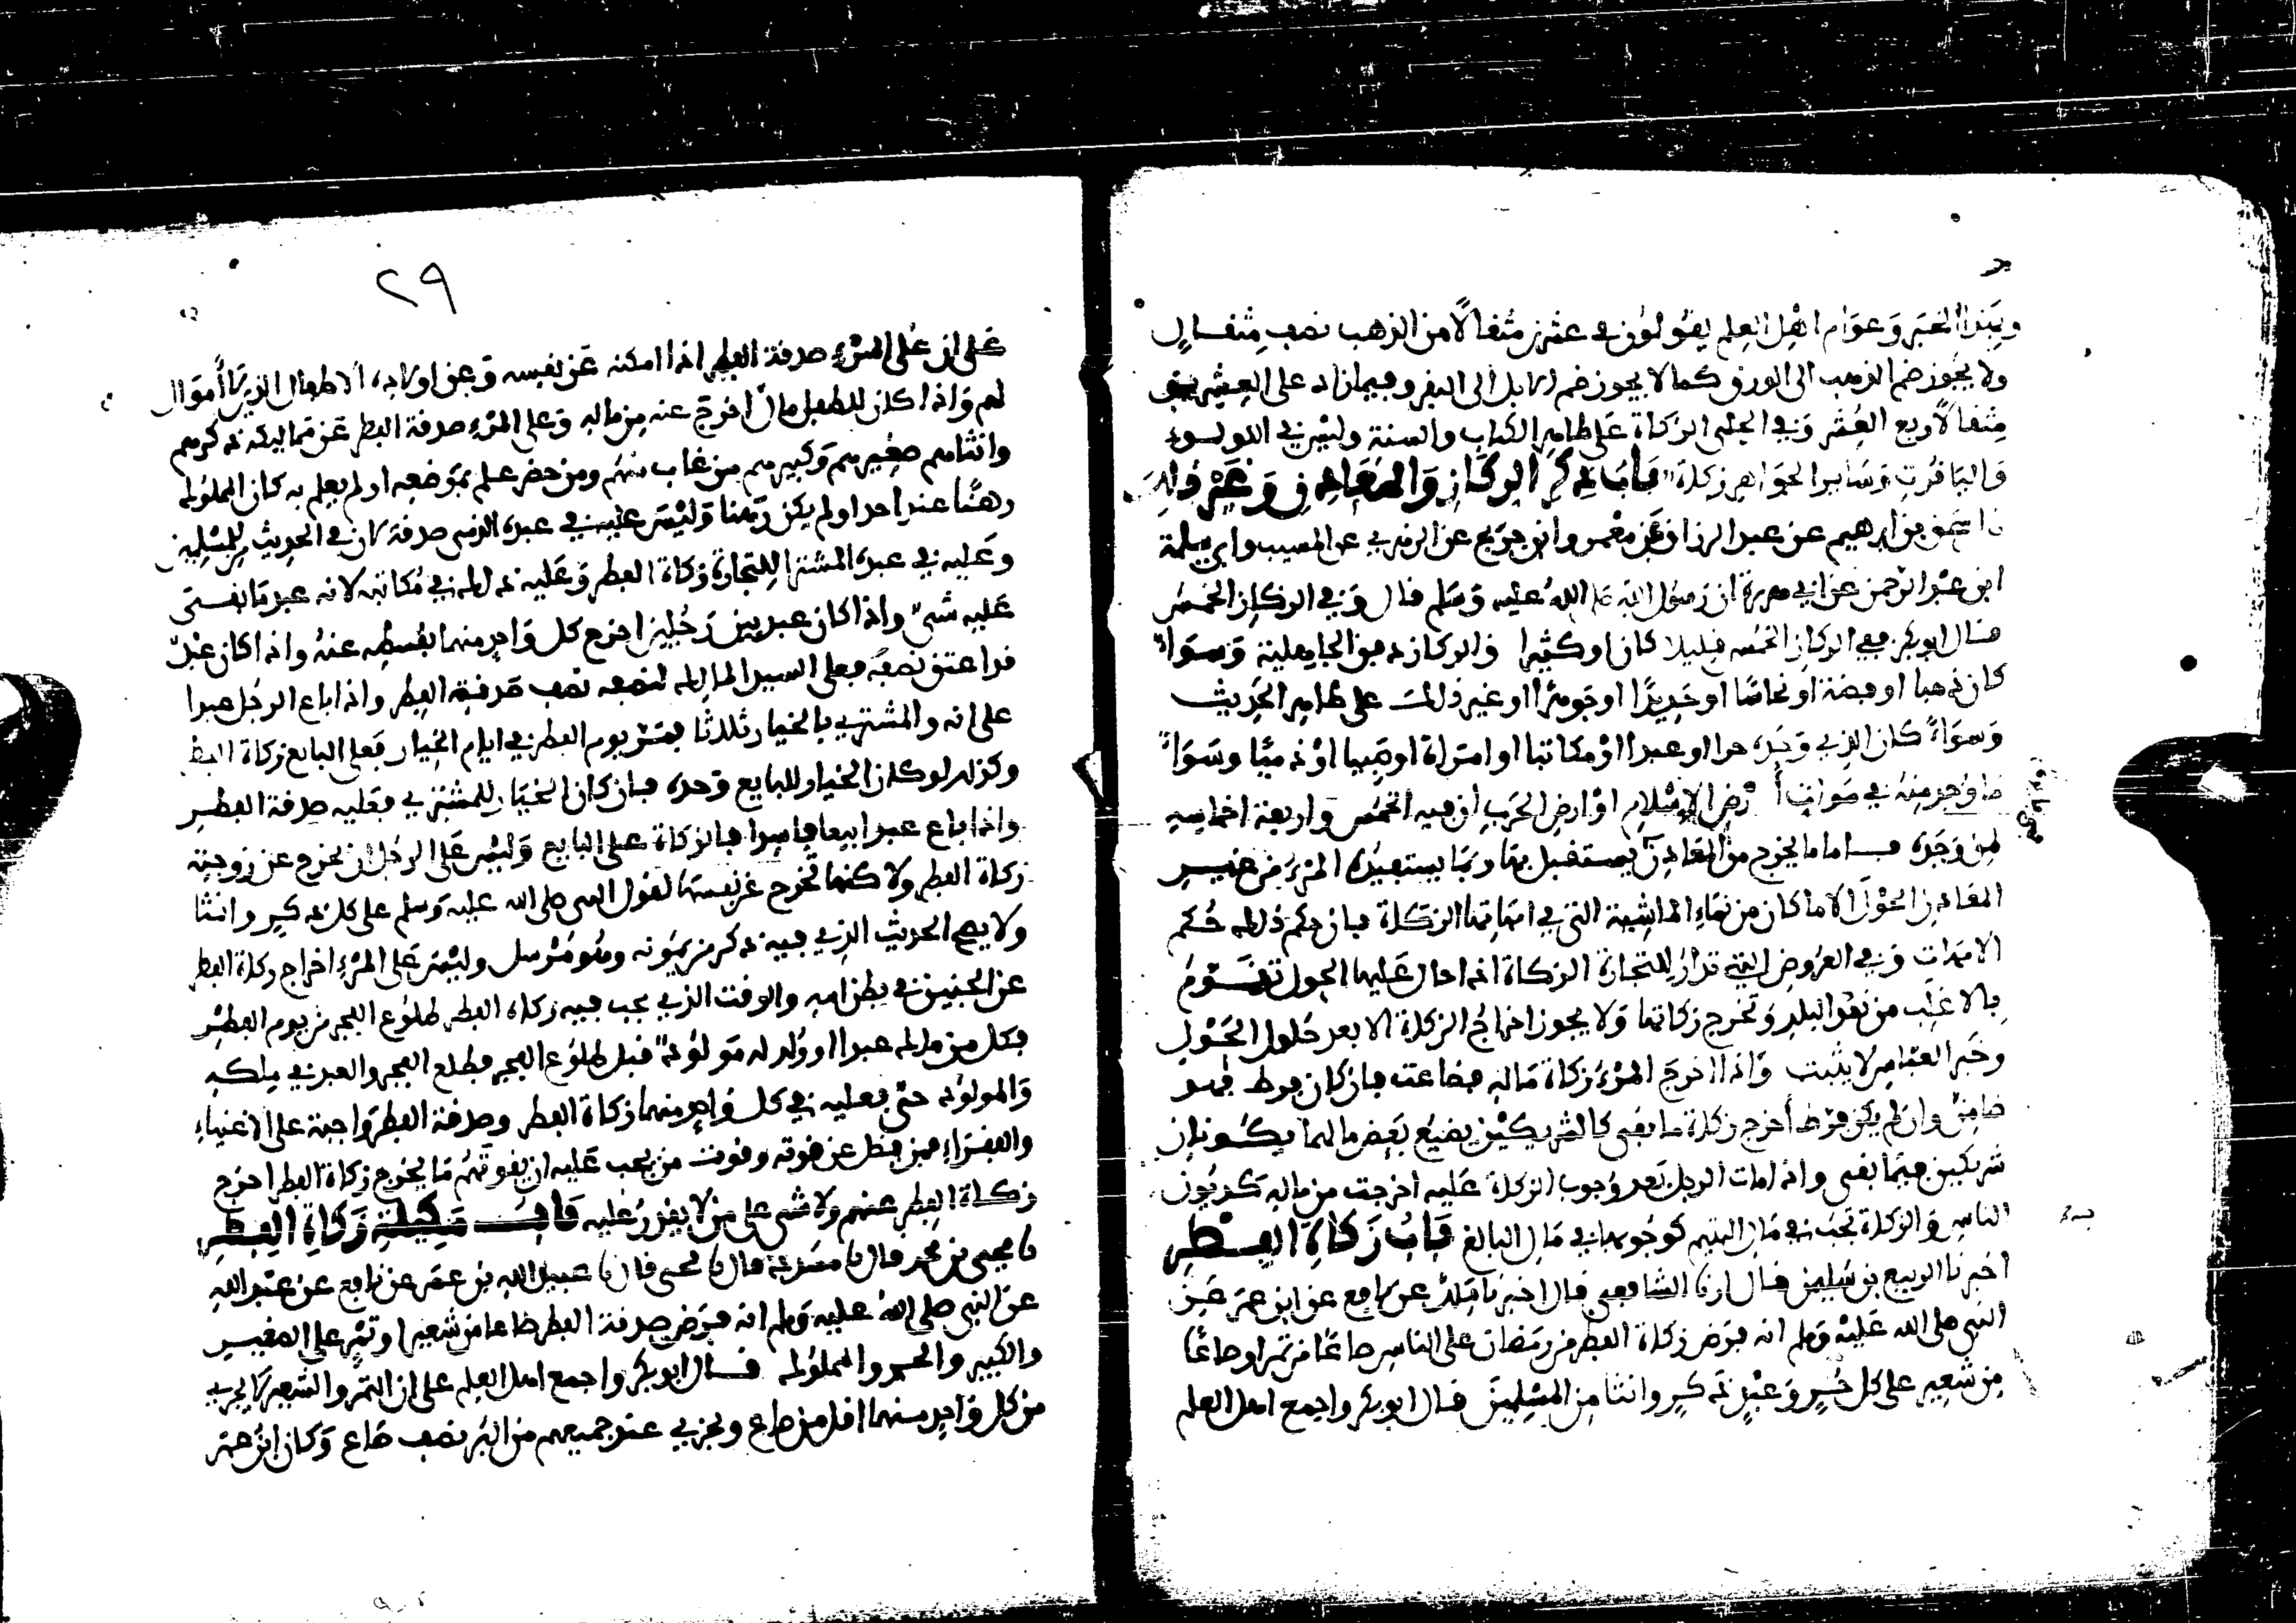 وبهذا الخبر وعوام اهل العلم يقولون في عشرين مثقالا من الذهب نصف مثقال
ولا يجوز ضم الذهب الى الورق كما لا يجوز ضم الابل الى البقر وفيما زاد على العشرين
مثقالا ربع العشر وفي الحلي الزكاة على ظاهر الكتاب والسنة وليس في اللولوء
والياقوت وسائر الجواهر زكاة باب ذكر الركاز والمعادن وغير ذلك
نا اسحق بن ابرهيم عن عبد الرزاق عن معمر وابن جريج عن الزهري عن المسيب وابي سلمة
ابن عبد الرحمن عن ابي هريرة ان رسول الله صلى الله عليه وسلم قال وفي الركاز الخمس
قال ابو بكر ففي الركاز الخمس قليلا كان او كثيرا والركاز دفن الجاهلية وسواء
كان ذهبا او فضة او نحاسا او حديدا او جوهرا او غير ذلك على ظاهر الحديث
وسواء كان الذي وجده حرا او عبدا او مكاتبا او امراة او صبيا او ذميا وسواء
ما وجد منه في موات أرض الاسلام او ارض الحرب ان فيه الخمس واربعة اخماسه
لمن وجده فاما ما يخرج من المعادن يستقبل بها وبما يستفيده المرء من غير
المعادن الحول الا ما كان من نماء الماشية التي في امهاتها الزكاة فان حكم ذلك حكم
الامهات وفي العروض التي تدار للتجارة الزكاة اذا حال عليها الحول تقوم
بالاغلب من نقد البلد وتخرج زكاتها ولا يجوز اخراج الزكاة الا بعد حلول الحول
وخبر العباس لا يثبت واذا اخرج المرء زكاة ماله فضاعت فان كان فرط فهو
ضامن وان لم يكن فرط أخرج زكاة ما بقي كالشريكين يضيع بعض مالهما يكونان
شريكين فيما بقي واذا مات الرجل بعد وجوب الزكاة عليه اخرجت من ماله كديون
الناس والزكاة تجب في مال اليتيم كوجوبها في مال البالغ باب زكاة الفطر
اخبرنا الربيع بن سليمن قال ارنا الشافعي قال اخبرنا ملك عن نافع عن ابن عمر عن
النبي صلى الله عليه وسلم انه فرض زكاة الفطر من رمضان على الناس صاعا من تمر او صاعا
من شعير على كل حر وعبد ذكر وانثا من المسلمين قال ابو بكر واجمع اهل العلم
٢٩
على ان على المرء صدقة الفطر اذا امكنه عن نفسه وعن اولاده الاطفال الذين لا أموال
لهم واذا كان للطفل مال اخرج عنه من ماله وعلى المرء صدقة الفطر عن مماليكه ذكرهم
وانثاهم صغيرهم وكبيرهم من غاب منهم ومن حضر علم بموضعه او لم يعلم به كان المملوك
رهنا عند احد او لم يكن رهنا وليس عليه في عبده الذمي صدقة لان في الحديث من المسلمين
وعليه في عبده المشترا للتجارة زكاة الفطر وعليه ذلك في مكاتبه لانه عبد ما بقي
عليه شيء واذا كان عبد بين رجلين اخرج كل واحد منهما بقسطه عنه واذا كان عبد
قد اعتق نصفه فعلى السيد المالك لنصفه نصف صدقة الفطر واذا باع الرجل عبدا
على انه والمشتري بالخيار ثلاثا فمر يوم الفطر في ايام الخيار فعلى البايع زكاة الفطر
وكذلك لو كان الخيار للبايع وحده فان كان الخيار للمشتري فعليه صدقة الفطر
واذا باع عبدا بيعا فاسدا فالزكاة على البايع وليس على الرجل ان يخرج عن زوجته
زكاة الفطر ولا كنها تخرج عن نفسها لقول النبي صلى الله عليه وسلم على كل ذكر وانثا
ولا يصح الحديث الذي فيه ذكر من يمونه وهو مرسل وليس على المرء اخراج زكاة الفطر
عن الجنين في بطن امه والوقت الذي يجب فيه زكاة الفطر طلوع الفجر من يوم الفطر
فكل من ملك عبدا او ولد له مولود قبل طلوع الفجر فطلع الفجر والعبد في ملكه
والمولود حي فعليه في كل واحد منهما زكاة الفطر وصدقة الفطر واجبة على الاغنياء
والفقراء فمن فضل عن قوته وقوت من يجب عليه ان يقوتهم ما يخرج زكاة الفطر اخرج
زكاة الفطر عنهم ولا شي على من لا يقدر عليه باب مكيلة زكاة الفطر
نا يحيى بن محمد قال نا مسدد قال نا يحيى قال نا عبيد الله بن عمر عن نافع عن عبد الله
عن النبي صلى الله عليه وسلم انه فرض صدقة الفطر صاعا من شعير او تمر على الصغير
والكبير والحر والمملوك قال ابو بكر واجمع اهل العلم على ان التمر والشعير لا يجزي
من كل واحد منهما اقل من صاع ويجزي عند جميعهم من البر نصف صاع وكان ابن عمر